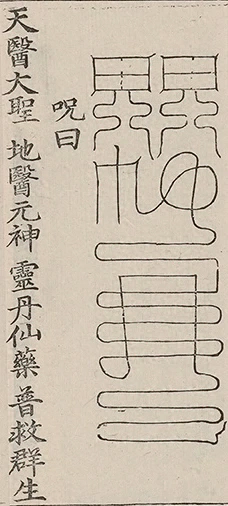 呪曰
天醫大聖 地醫元神 靈丹仙藥 普救群生